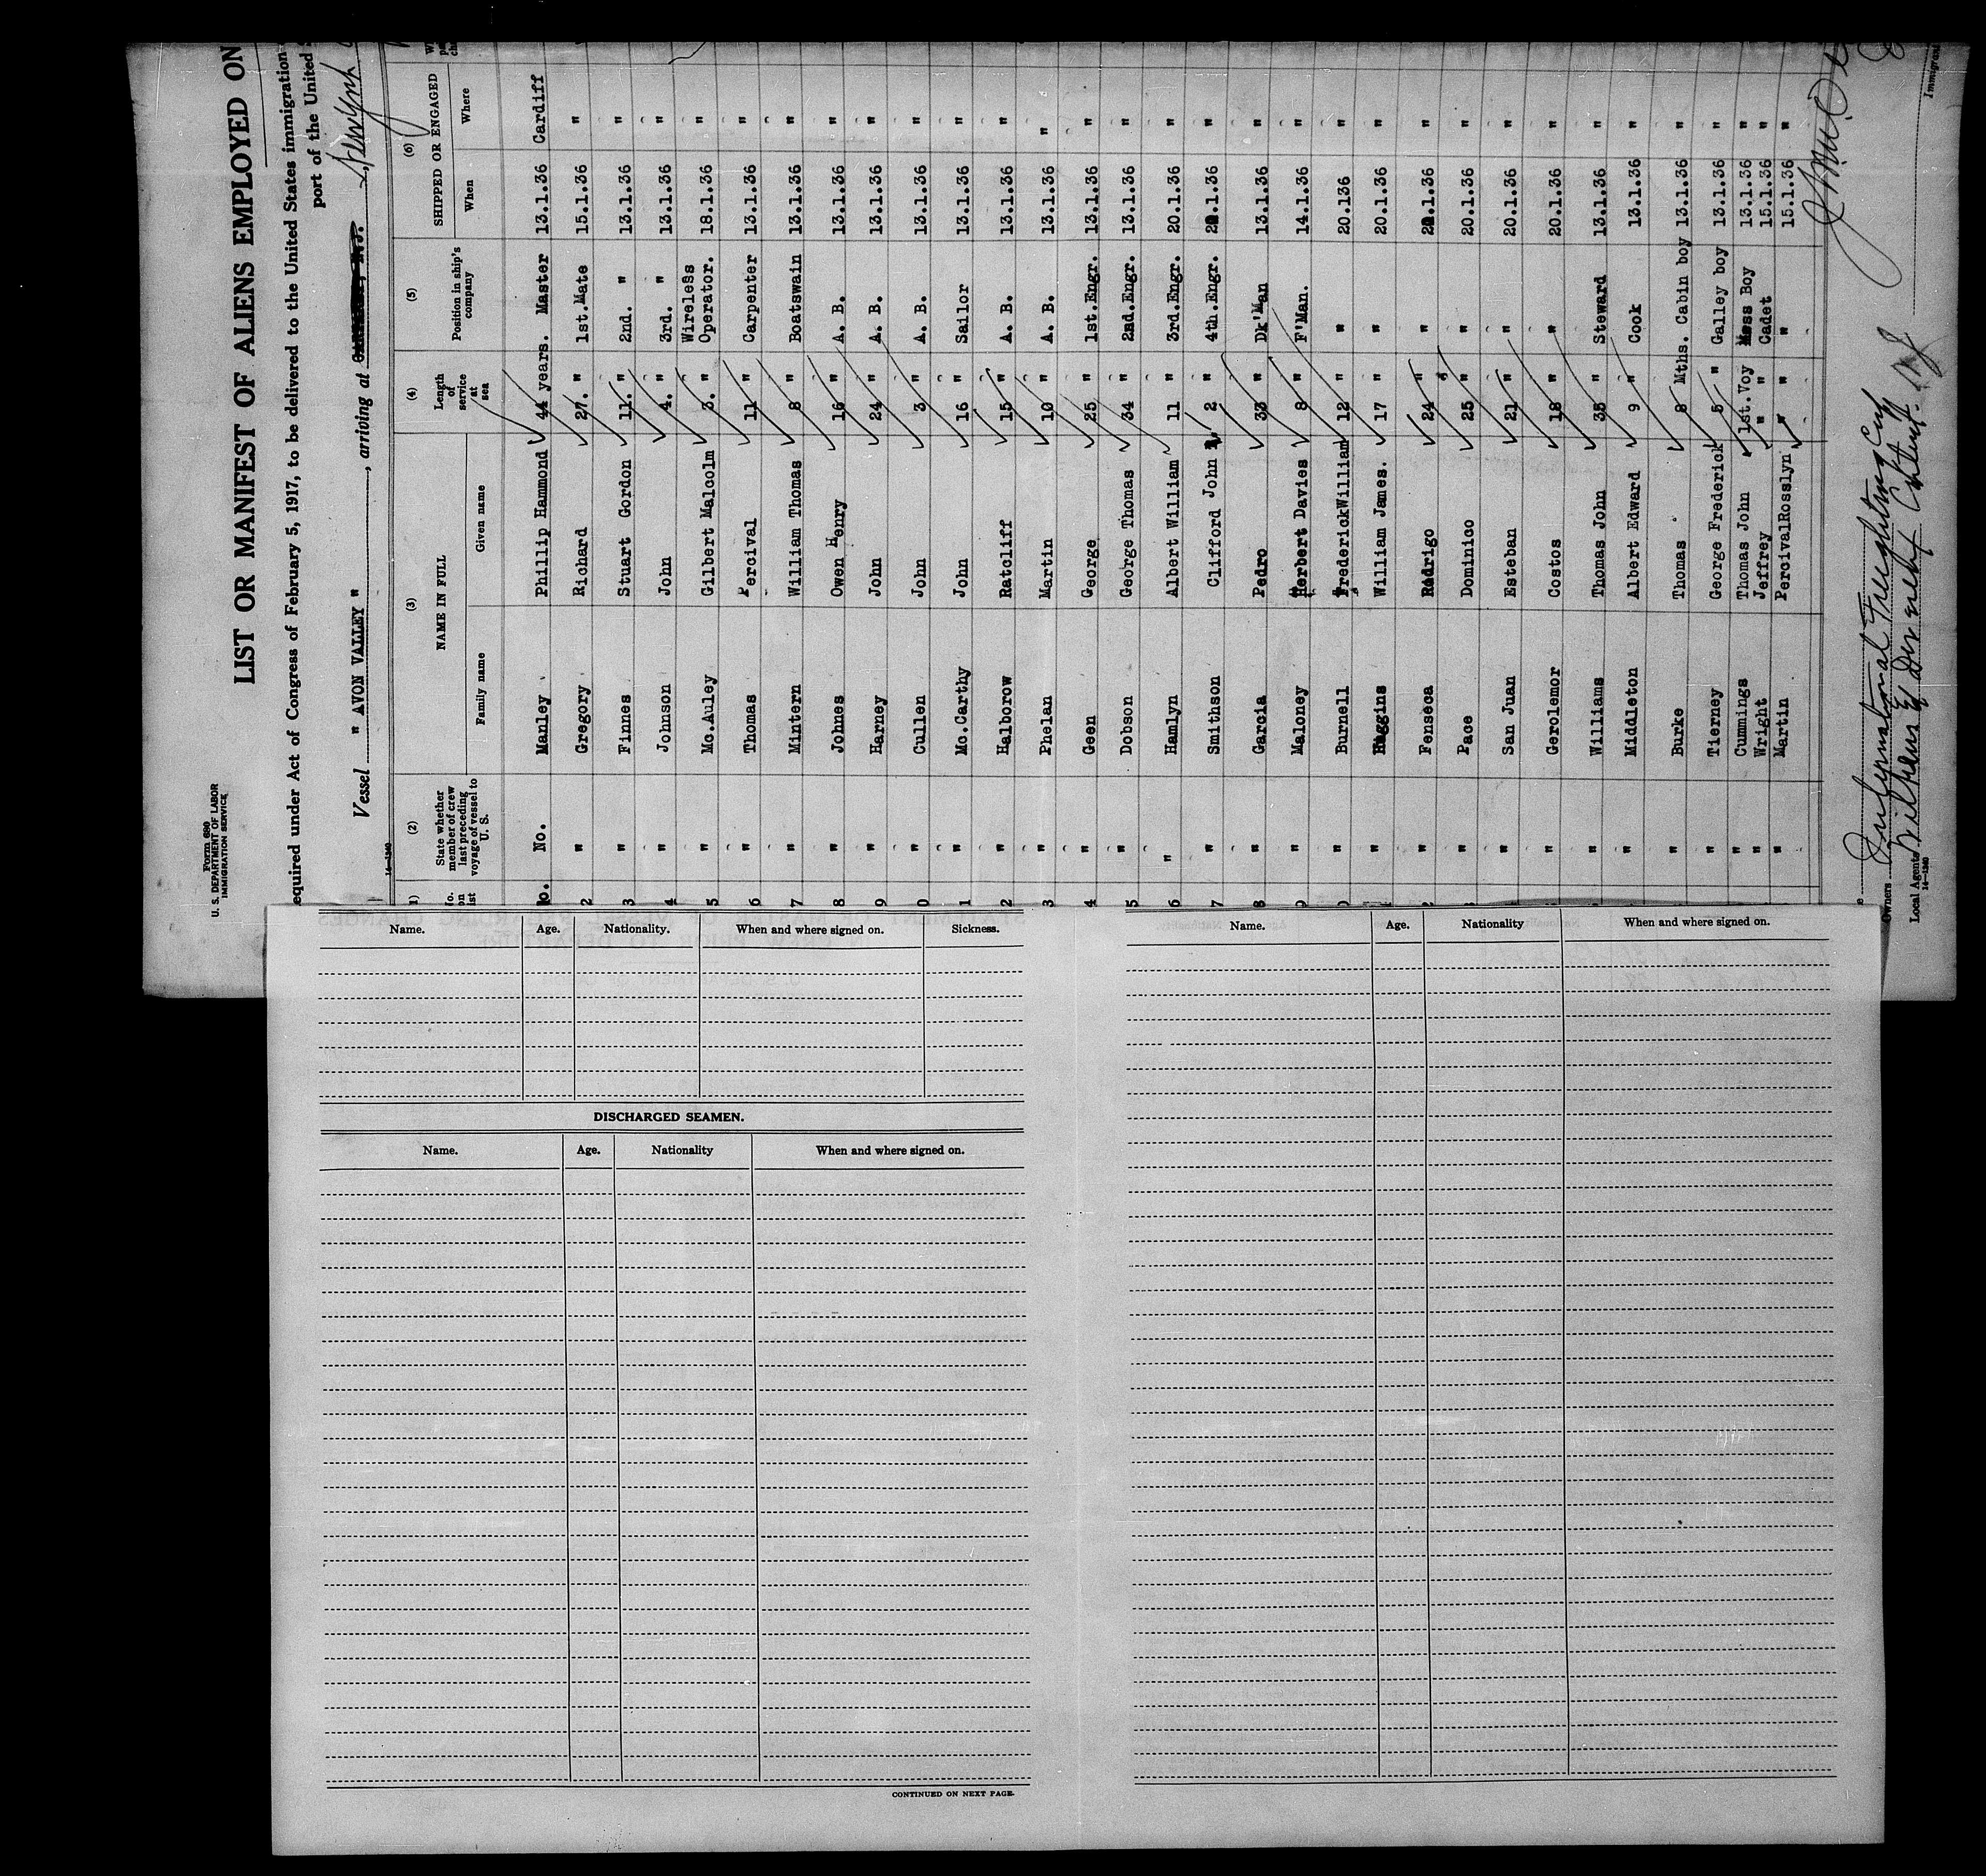 Form 680
U. S. DEPARTMENT OF LABOR
IMMIGRATION SERVICE
LIST OR MANIFEST OF ALIENS EMPLOYED ON
equired under Act of Congress of February 5, 1917, to be delivered to the United States immigration
port of the United
Vessel " AVON VALLEY " , arriving at
14—1240
(2) (3) (4) (5) (6)
State whether member of crew last preceding voyage of vessel to U. S. NAME IN FULL Length of service at sea Position in ship's company SHIPPED OR ENGAGED
Family name Given name When Where
No. Manley Phillip Hammond 44 years. Master 13.1.36 Cardiff
2 " Gregory Richard 27. " 1st.Mate 15.1.36 "
3 " Finnes Stuart Gordon 11. " 2nd. " 13.1.36 "
4 " Johnson John 4. " 3rd. " 13.1.36 "
5 " Mc.Auley Gilbert Malcolm 3. " Wireless Operator. 18.1.36 "
6 " Thomas Percival 11 " Carpenter 13.1.36 "
7 " Mintern William Thomas 8 " Boatswain 13.1.36 "
8 " Johnes Owen Henry 16 " A. B. 13.1.36 "
9 " Harney John 24 " A. B. 13.1.36 "
0 " Cullen John 3 " A. B. 13.1.36 "
1 " Mc.Carthy John 16 " Sailor 13.1.36 "
2 " Halborow Ratcliff 15 " A. B. 13.1.36 "
3 " Phelan Martin 10 " A. B. 13.1.36 "
4 " Geen George 25 " 1st.Engr. 13.1.36 "
5 " Dobson George Thomas 34 " 2nd.Engr. 13.1.36 "
6 " Hamlyn Albert William 11 " 3rd.Engr. 20.1.36 "
7 " Smithson Clifford John 2 " 4th.Engr. .1.36 "
8 " Garcia Pedro 33 " Dk'Man 13.1.36 "
9 " Maloney Herbert Davies 8 " F'Man. 14.1.36 "
0 " Burnell FrederickWilliam 12 " " 20.136 "
1 " Huggins William James. 17 " " 20.1.36 "
2 " Fenseca Rodrigo 24 " " .1.36 "
" Pace Dominico 25 " " 20.1.36 "
" San Juan Esteban 21 " " 20.1.36 "
" Gerolemor Costos 18 " " 20.1.36 "
" Williams Thomas John 35 " Steward 13.1.36 "
" Middleton Albert Edward 9 " Cook 13.1.36 "
" Burke Thomas 8 Mths. Cabin boy 13.1.36 "
" Tierney George Frederick 5 " Galley boy 13.1.36 "
" Cummings Thomas John 1st.Voy Mess Boy 13.1.36 "
" Wright Jeffrey " " Cadet 15.1.36 "
" Martin PercivalRosslyn " " " 15.1.36 "
Owners International Freighting Corp
Local Agents
14—1240
Immigrant
Name. Age. Nationality. When and where signed on. Sickness.
DISCHARGED SEAMEN.
Name. Age. Nationality When and where signed on.
CONTINUED ON NEXT PAGE.
Name. Age. Nationality When and where signed on.